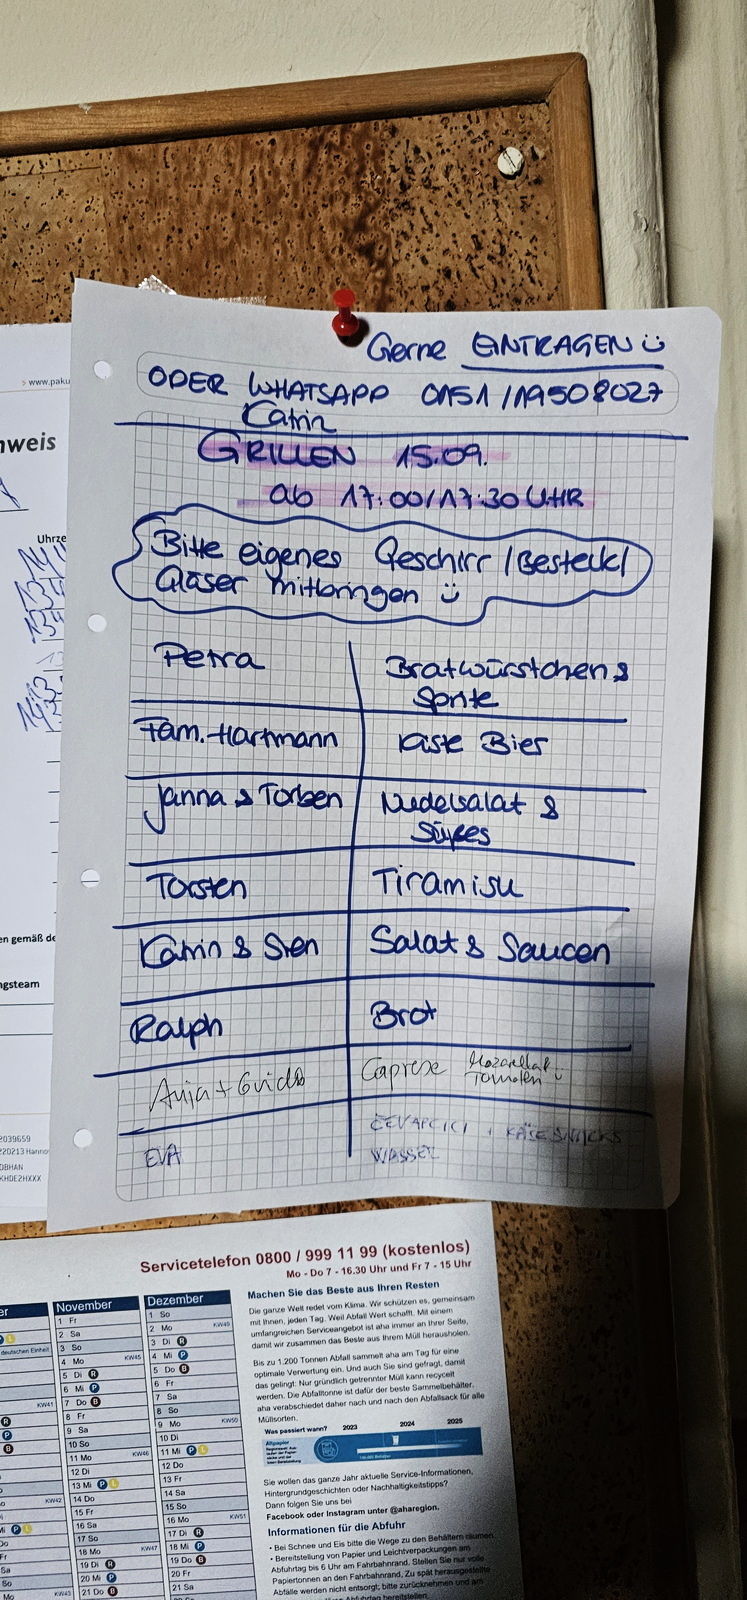 Gerne EINTRAGEN ü
ODER WHATSAPP 0151/19508027
Katrin
GRILLEN 15.09.
ab 17:00/17:30 UHR
Bitte eigenes Geschirr/Besteck/
Gläser mitbringen ü
Petra Bratwürstchen &
Sprite
Fam. Hartmann Kiste Bier
Janna & Torben Nudelsalat &
Süßes
Torsten Tiramisu
Katrin & Sven Salat & Saucen
Ralph Brot
Anja + Guido Caprese Mozarella +
Tomaten
EVA CEVAPCICI, KÄSESNACKS
WASSER
> www.paku
nweis
Uhrze
en gemäß de
ngsteam
2039659
220213 Hanno
OBHAN
KHDE2HXXX
Servicetelefon 0800 / 999 11 99 (kostenlos)
Mo - Do 7 - 16.30 Uhr und Fr 7 - 15 Uhr
er
deutschen Einheit
KW41
KW42
KW43
November
1 Fr
2 Sa
3 So
4 Mo KW45
5 Di R
6 Mi P
7 Do B
8 Fr
9 Sa
10 So
11 Mo KW46
12 Di
13 Mi P L
14 Do
15 Fr
16 Sa
17 So
18 Mo KW47
19 Di R
20 Mi P
21 Do B
Dezember
1 So
2 Mo KW49
3 Di R
4 Mi P
5 Do B
6 Fr
7 Sa
8 So
9 Mo KW50
10 Di
11 Mi P L
12 Do
13 Fr
14 Sa
15 So
16 Mo KW51
17 Di R
18 Mi P
19 Do B
20 Fr
21 Sa
Machen Sie das Beste aus Ihren Resten
Die ganze Welt redet vom Klima. Wir schützen es, gemeinsam
mit Ihnen, jeden Tag. Weil Abfall Wert schafft. Mit einem
umfangreichen Serviceangebot ist aha immer an Ihrer Seite,
damit wir zusammen das Beste aus Ihrem Müll herausholen.
Bis zu 1.200 Tonnen Abfall sammelt aha am Tag für eine
optimale Verwertung ein. Und auch Sie sind gefragt, damit
das gelingt: Nur gründlich getrennter Müll kann recycelt
werden. Die Abfalltonne ist dafür der beste Sammelbehälter.
aha verabschiedet daher nach und nach den Abfallsack für alle
Müllsorten.
Was passiert wann? 2023 2024 2025
Altpapier
Sie wollen das ganze Jahr aktuelle Service-Informationen,
Hintergrundgeschichten oder Nachhaltigkeitstipps?
Dann folgen Sie uns bei
Facebook oder Instagram unter @aharegion.
Informationen für die Abfuhr
• Bei Schnee und Eis bitte die Wege zu den Behältern räumen.
• Bereitstellung von Papier und Leichtverpackungen am
Abfuhrtag bis 6 Uhr am Fahrbahnrand. Stellen Sie nur volle
Papiertonnen an den Fahrbahnrand. Zu spät herausgestellte
Abfälle werden nicht entsorgt; bitte zurücknehmen und am